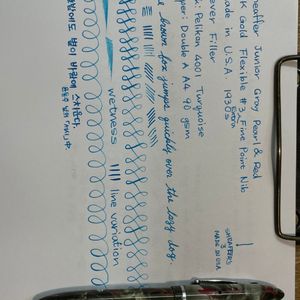 Sheaffer Junior Gray Pearl & Red
14K Gold Flexible #3 Fine Point Nib
Made in U.S.A. 1930s
Lever Filler
Ink: Pelikan 4001 Turquoise
Paper: Double A A4 90 gsm
brown fox jumps quickly over the lazy dog.
wetness
line variation
별이 바람에 스치운다.
SHEAFFER'S
3
MADE IN USA